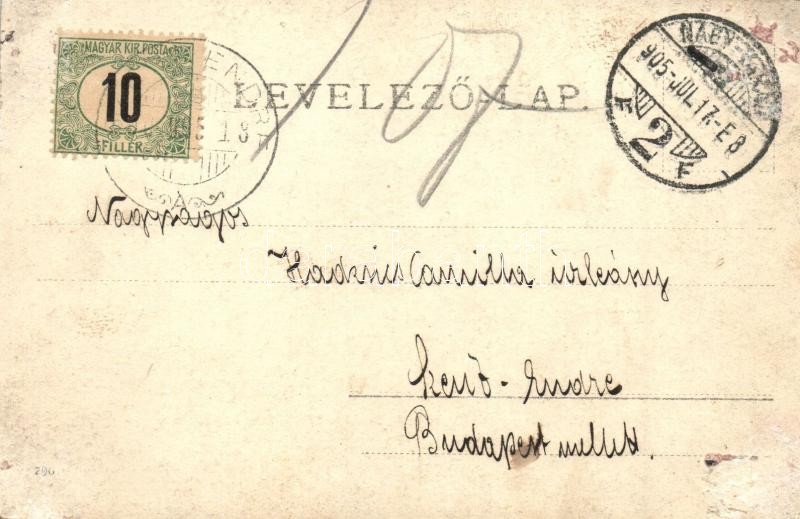 MAGYAR KIR. POSTA
10
FILLÉR
ENDRE
18
A
LEVELEZŐ-LAP.
10
NAGY-
905-JUL.17.-E 8
F 2 F
Nagyságos
Camilla úrleány
Szent-Endre
Budapest mellett.
290